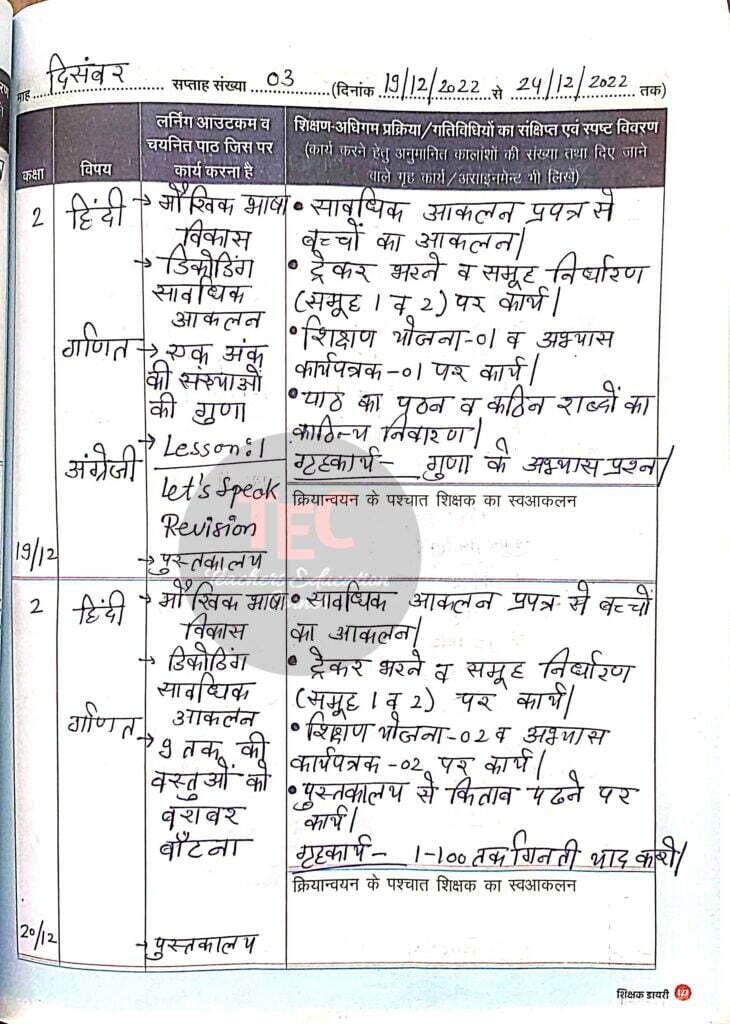 माह दिसंबर सप्ताह संख्या 03 (दिनांक 19/12/2022 से 24/12/2022 तक)
कक्षा
विषय
लर्निंग आउटकम व
चयनित पाठ जिस पर
कार्य करना है
शिक्षण-अधिगम प्रक्रिया/गतिविधियों का संक्षिप्त एवं स्पष्ट विवरण
(कार्य करने हेतु अनुमानित कालांशों की संख्या तथा दिए जाने
वाले गृह कार्य/असाइनमेन्ट भी लिखें)
2
हिंदी
गणित
अंग्रेजी
19/12
→ मौखिक भाषा
विकास
→ डिकोडिंग
सावधिक
आकलन
→ एक अंक
की संख्याओं
की गुणा
→ Lesson:1
Let's Speak
Revision
→ पुस्तकालय
• सावधिक आकलन प्रपत्र से
बच्चों का आकलन|
• ट्रेकर भरने व समूह निर्धारण
(समूह 1 व 2) पर कार्य|
• शिक्षण योजना-01 व अभ्यास
कार्यपत्रक-01 पर कार्य|
• पाठ का पठन व कठिन शब्दों का
काठिन्य निवारण|
गृहकार्य- गुणा के अभ्यास प्रश्न|
क्रियान्वयन के पश्चात शिक्षक का स्वआकलन
TEC
Teachers Education
2
हिंदी
गणित
20/12
→ मौखिक भाषा
विकास
→ डिकोडिंग
सावधिक
आकलन
→ 9 तक की
वस्तुओं को
बराबर
बाँटना
→ पुस्तकालय
• सावधिक आकलन प्रपत्र से बच्चों
का आकलन|
• ट्रेकर भरने व समूह निर्धारण
(समूह 1 व 2) पर कार्य|
• शिक्षण योजना-02 व अभ्यास
कार्यपत्रक-02 पर कार्य|
• पुस्तकालय से किताब पढने पर
कार्य|
गृहकार्य- 1-100 तक गिनती याद करो|
क्रियान्वयन के पश्चात शिक्षक का स्वआकलन
शिक्षक डायरी